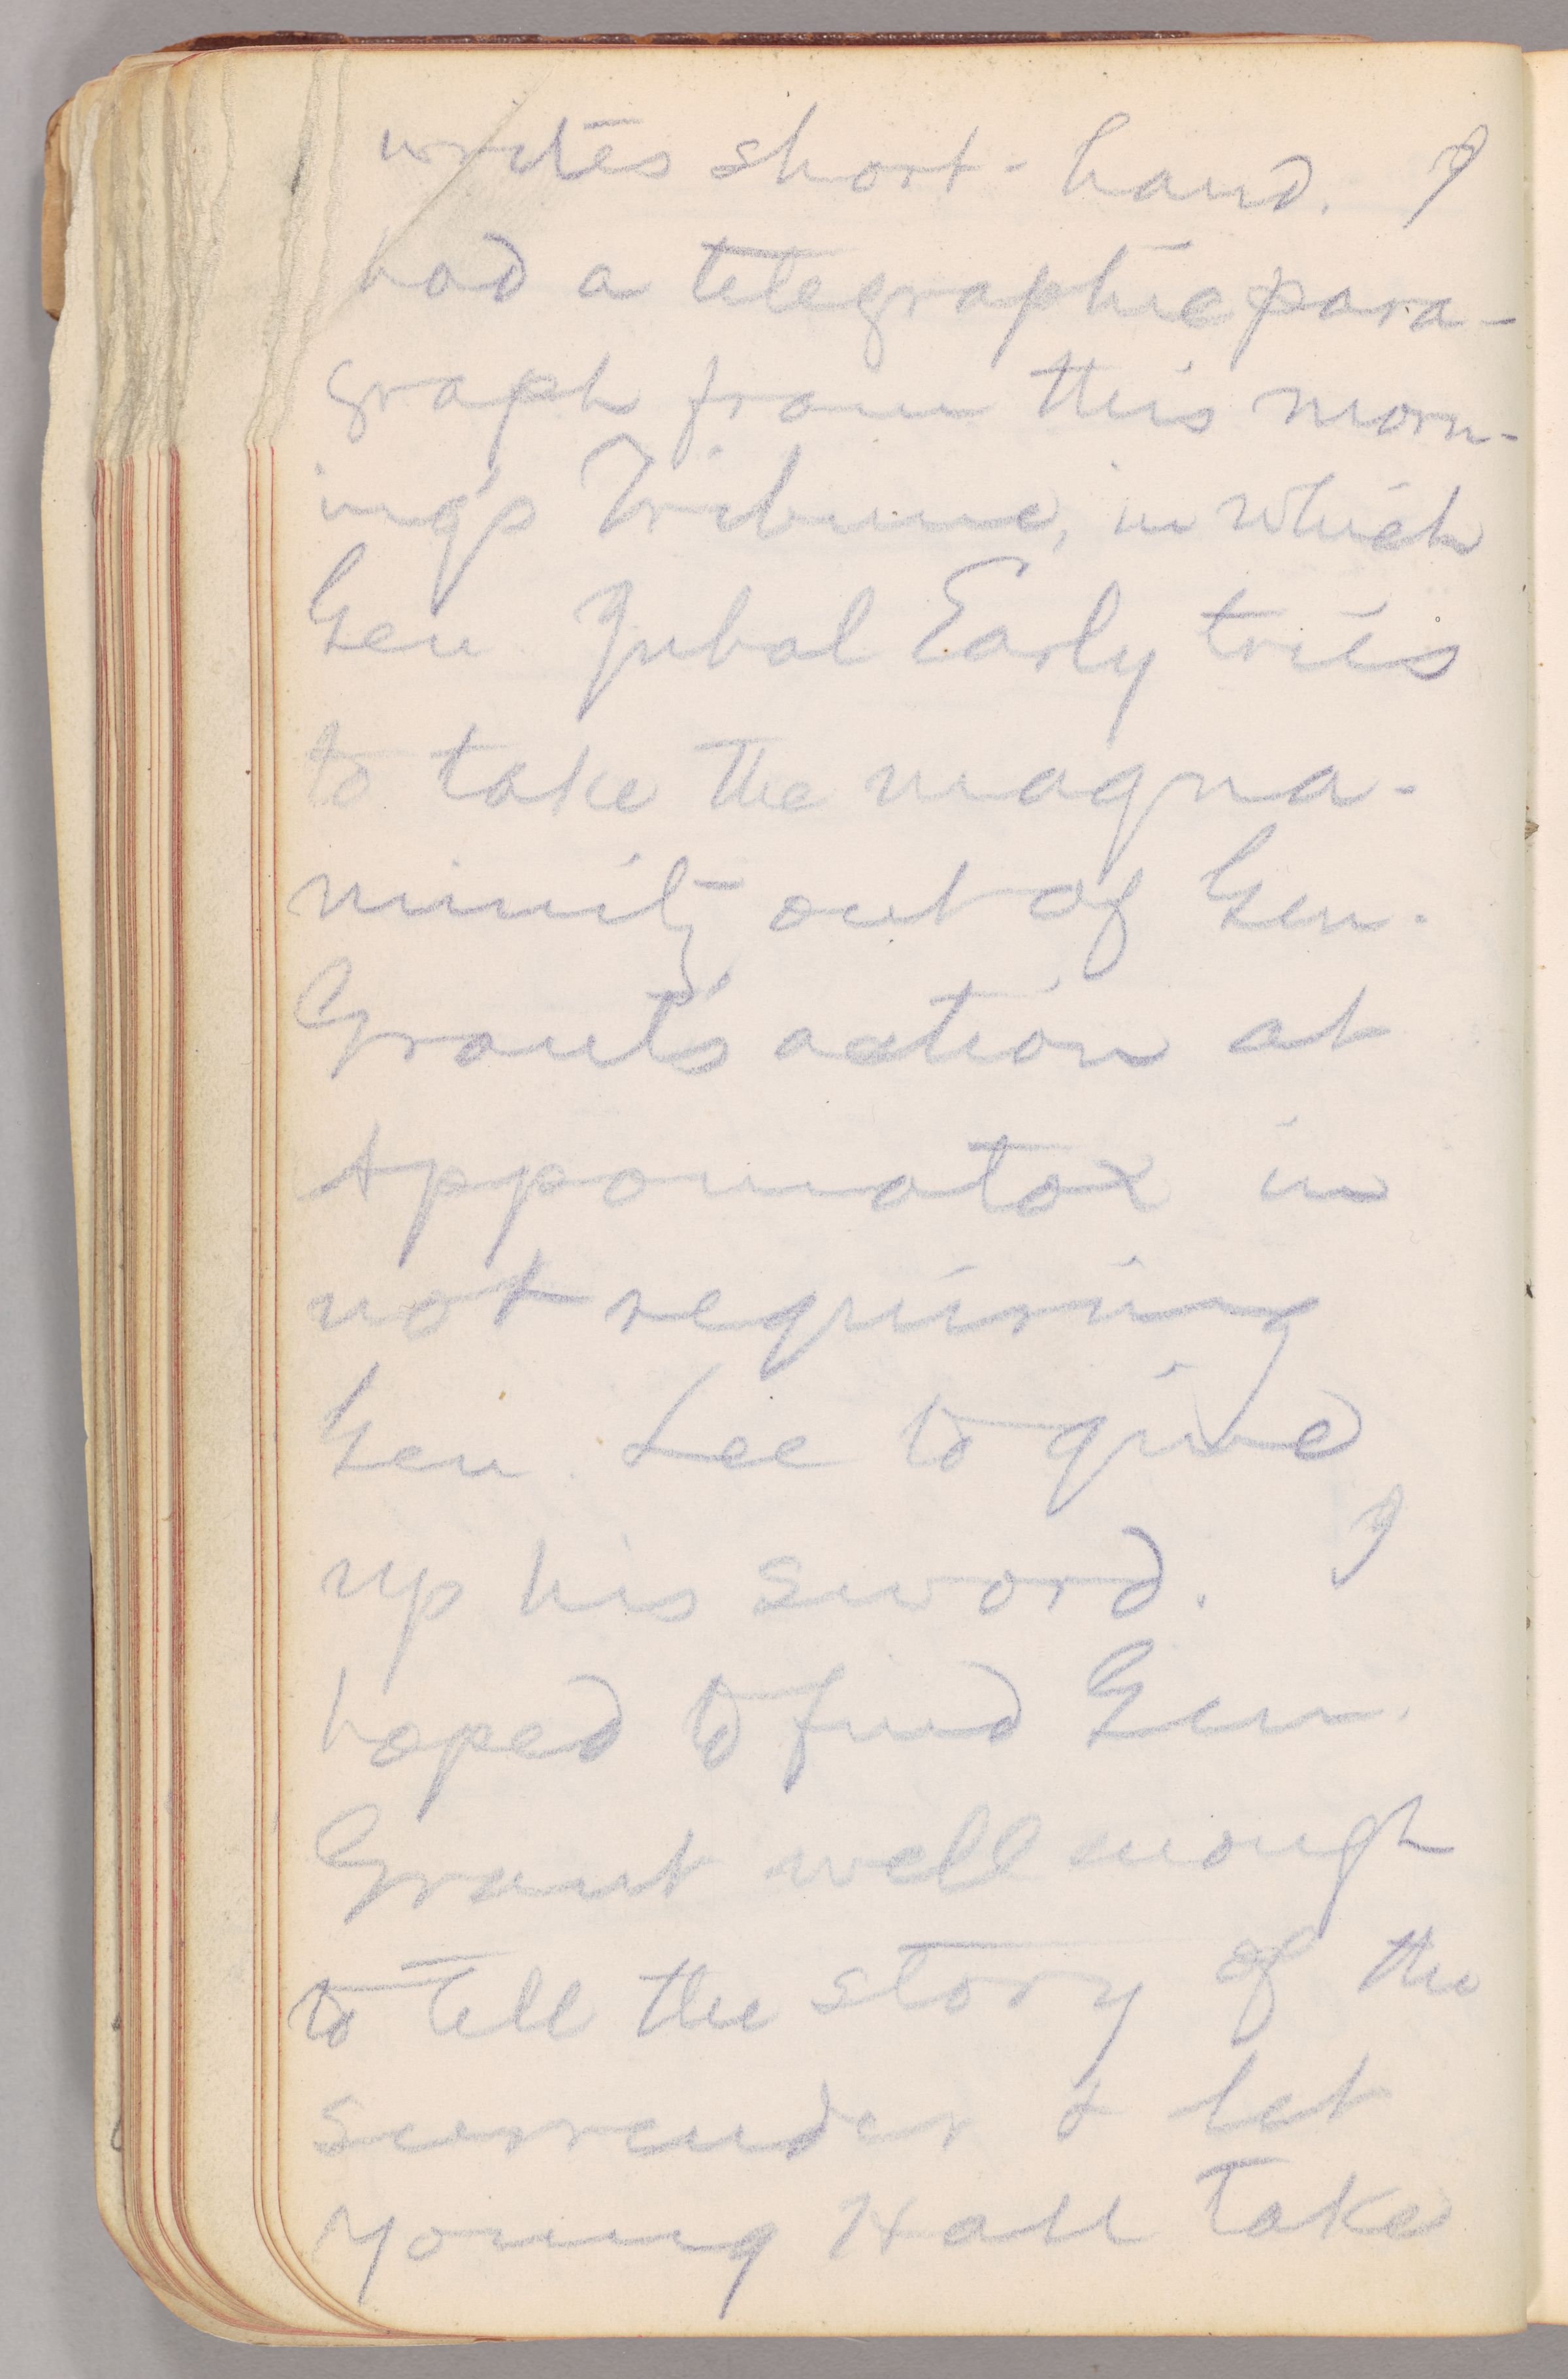 writes short-hand. I
had a telegraphic para-
graph from this morn-
ing's Tribune, in which
Gen Jubal Early tries
to take the magna-
nimity out of Gen.
Grant's action at
Appomatox in
not requiring
Gen. Lee to give
up his sword. I
hoped to find Gen.
Grant well enough
to tell the story of the
surrender & let
young Hall take